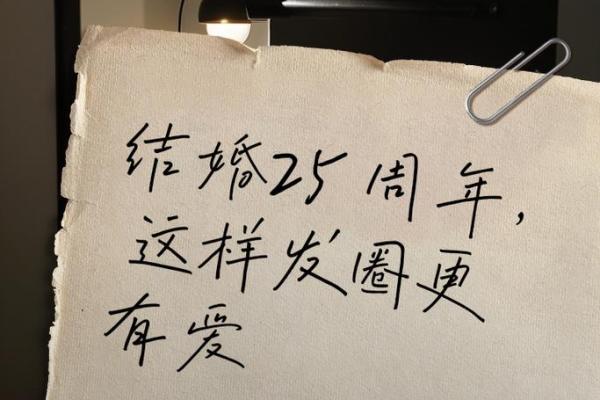 结婚25周年,
这样发圈更
有爱